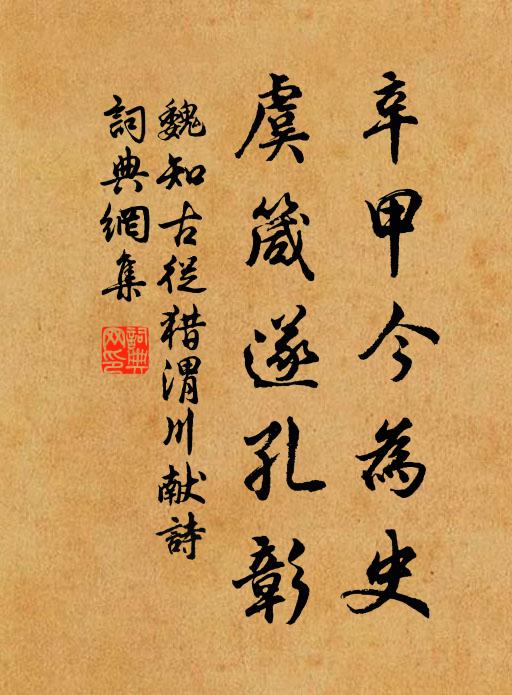 辛甲今為史
虞箴遂孔彰
魏知古從猎渭川献詩
詞典網集
詞典网印